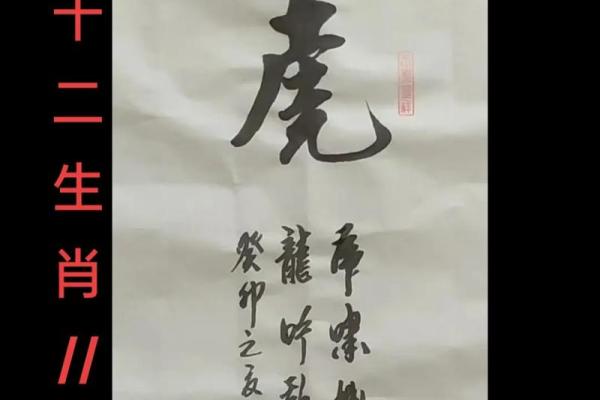 十二生肖//
虎
虎啸
龍吟
癸卯之夏